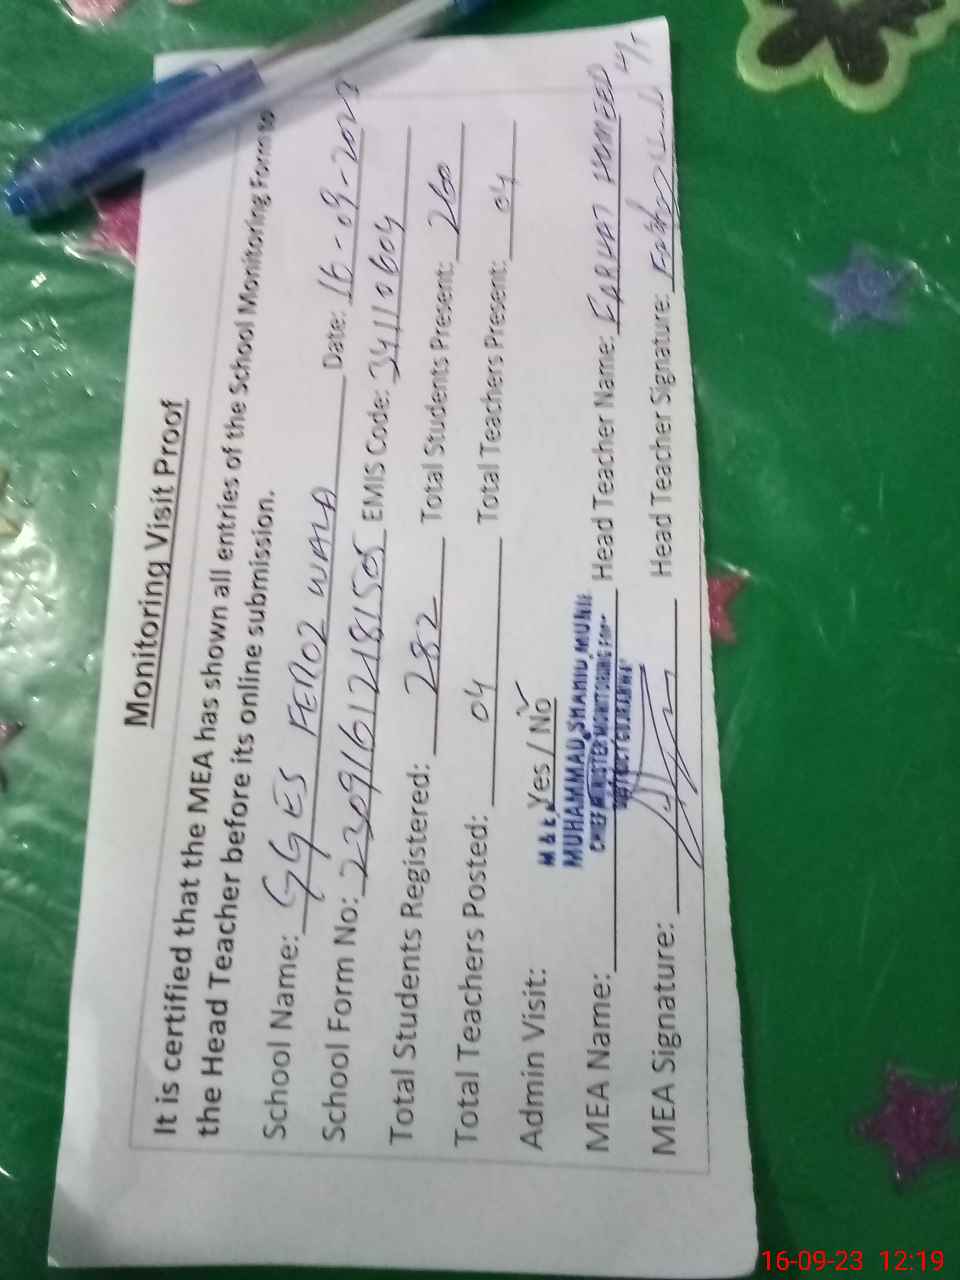 Monitoring Visit Proof
It is certified that the MEA has shown all entries of the School Monitoring Form to
the Head Teacher before its online submission.
School Name: GGES FEROZ WALA Date: 16-09-2023
School Form No: 23091612181505 EMIS Code: 34110604
Total Students Registered: 282 Total Students Present: 260
Total Teachers Posted: 04 Total Teachers Present: 04
Admin Visit: Yes / No
M & E
MUHAMMAD SHAHID MUNIR
CHIEF MINISTER MONITORING
DISTRICT GUJRANWALA
MEA Name: Head Teacher Name: FARHAT HAMEED
MEA Signature: Head Teacher Signature:
16-09-23 12:19